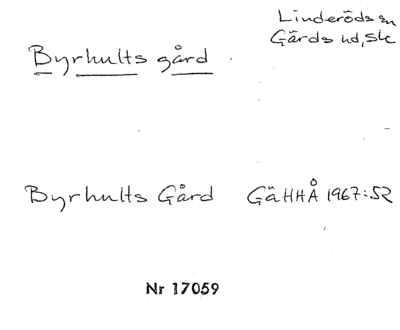 Linderöds sn
Gärds hd, Sk
Byrhults gård
Byrhults Gård GäHHÅ 1967:52
Nr 17059